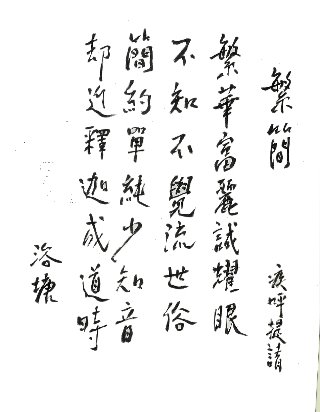 繁簡
疾呼提請
繁華富麗誠耀眼
不知不覺流世俗
簡約單純少知音
却近釋迦成道時
洛塘